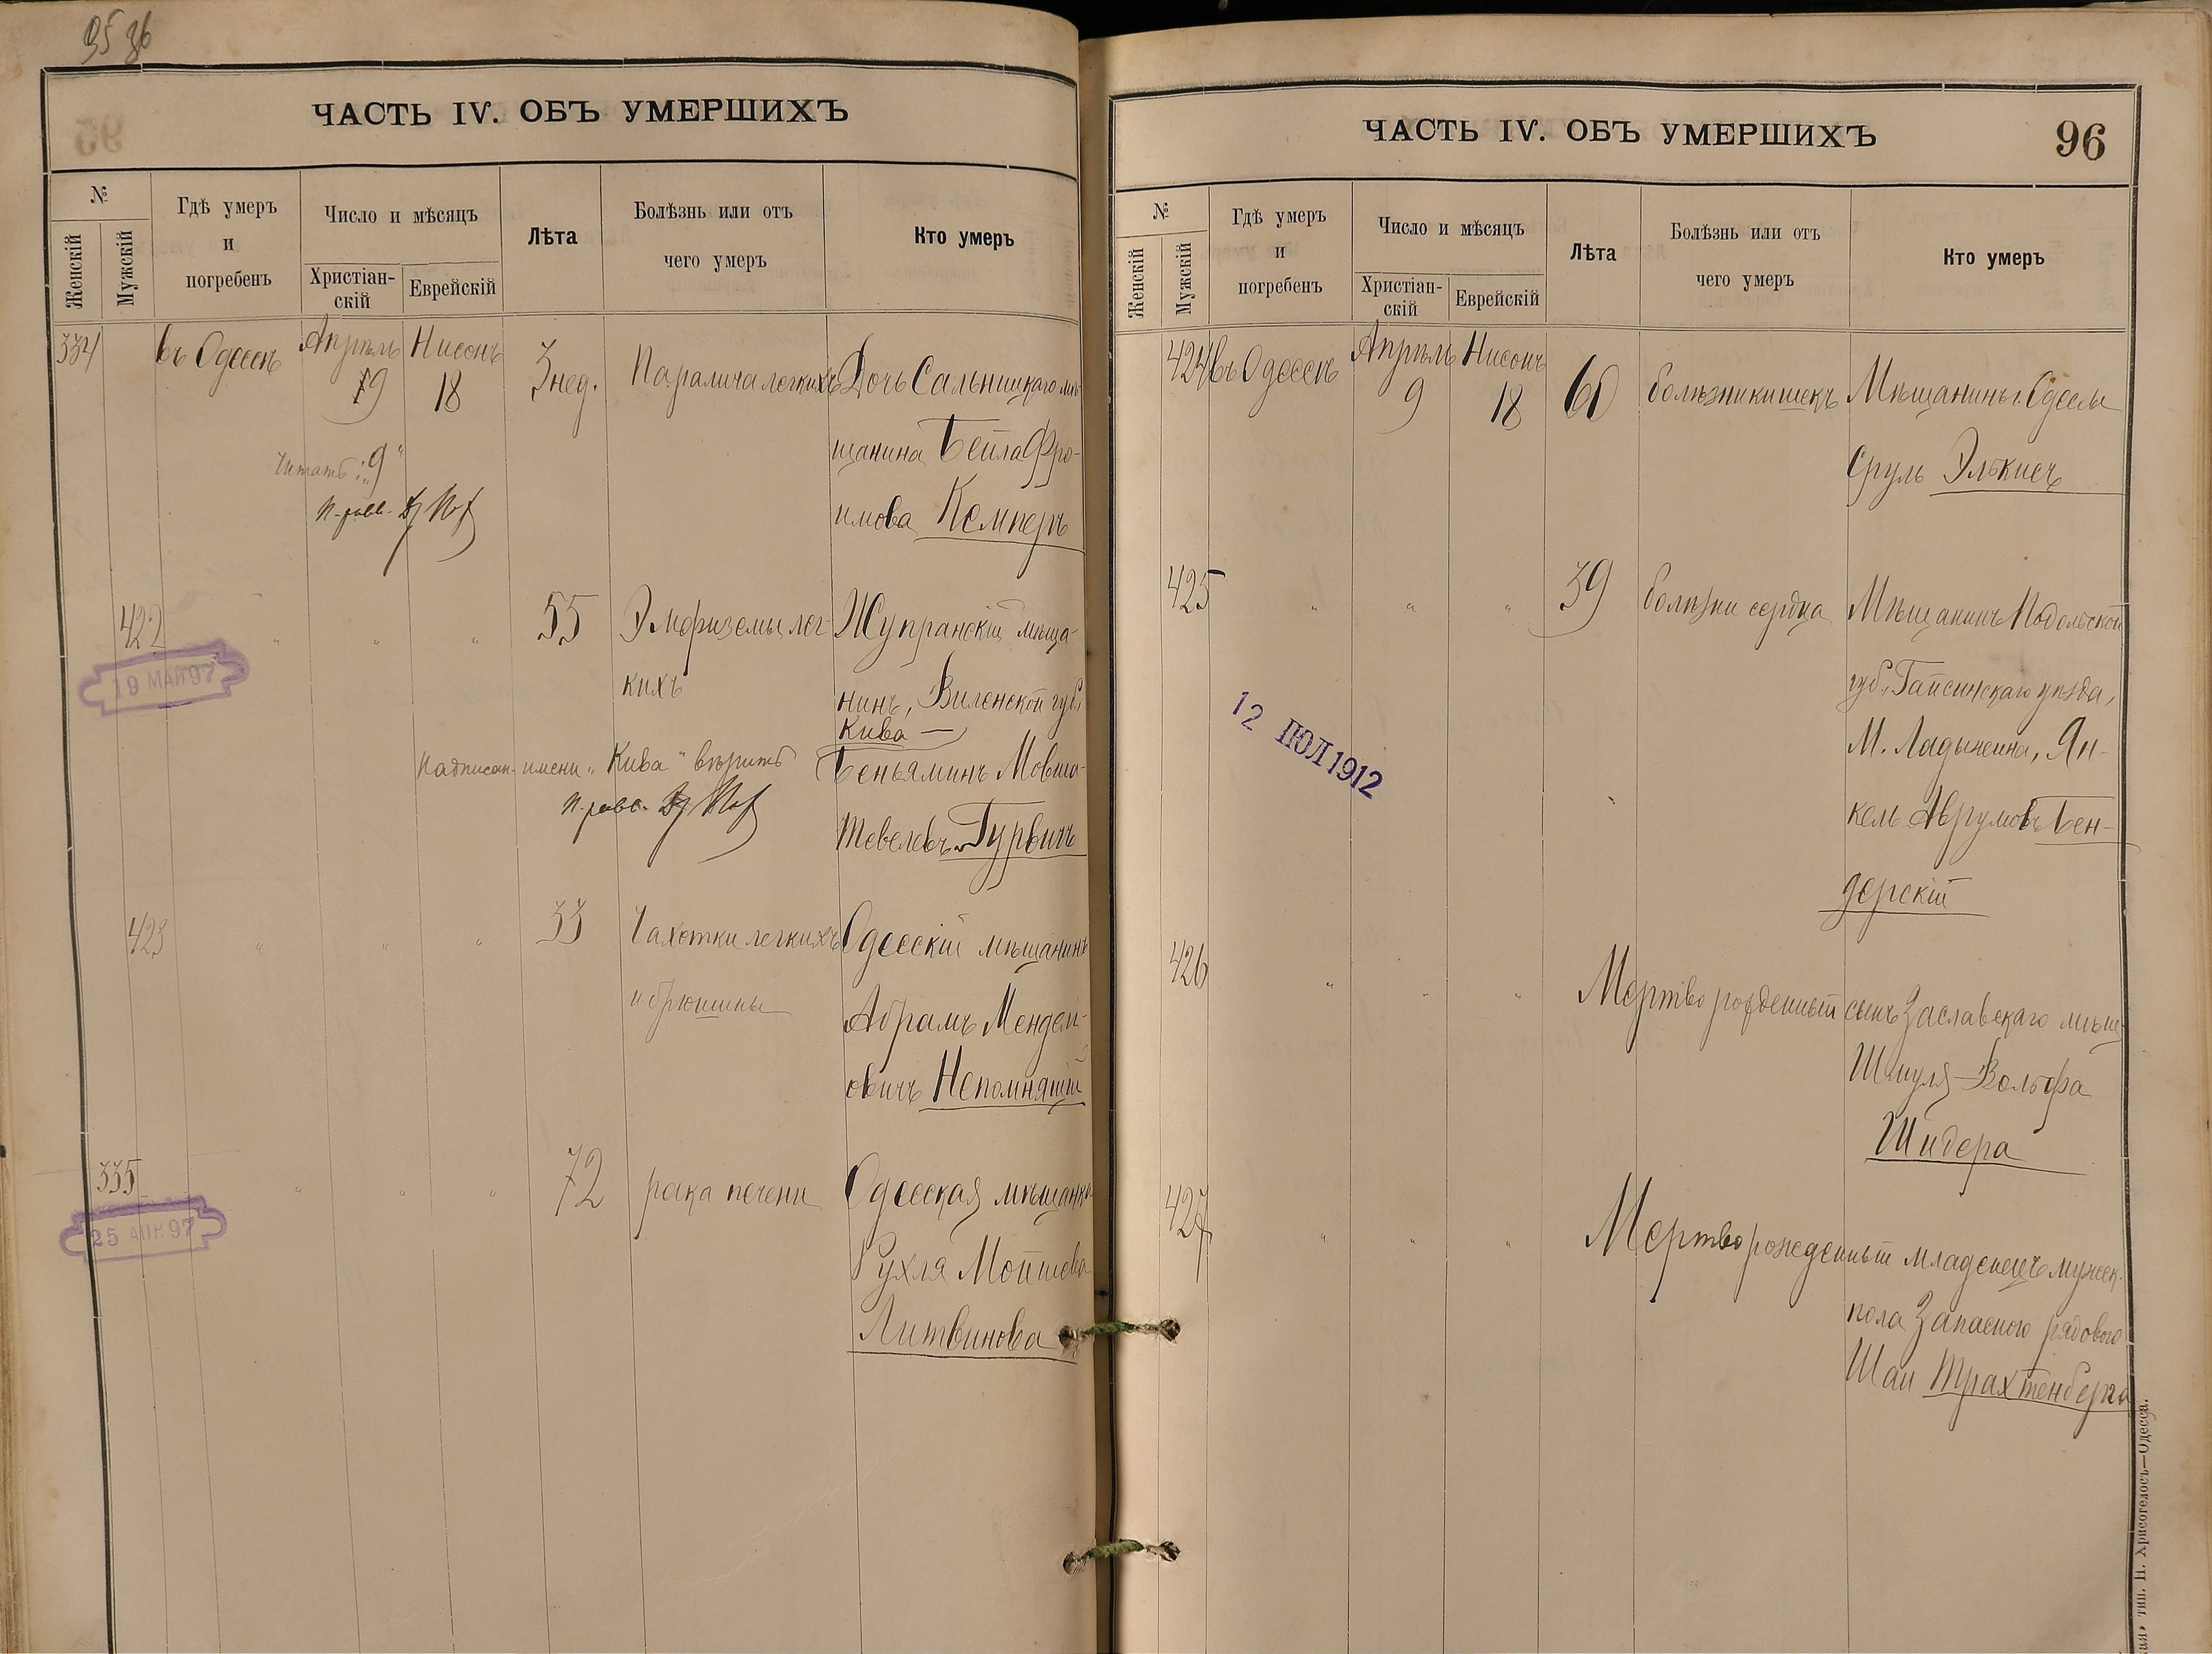 95 96
ЧАСТЬ IV. ОБЪ УМЕРШИХЪ
№
Женскій
Мужскій
Гдѣ умеръ
и
погребенъ
Число и мѣсяцъ
Христіан-
скій
Еврейскій
Лѣта
Болѣзнь или отъ
чего умеръ
Кто умеръ
334 въ Одессѣ Апрѣль 19 Нисонъ 18 3 нед. Паралича легкихъ Дочь Сальницкаго мѣ-
щанина Бейла Фро-
имова Кемперъ
Читать: „9"
П. равв.
422 " " " 55 Эмфиземы лег- Жупранскій мѣща-
кихъ нинъ, Виленской губ.
Кива —
Беньяминъ Мовша-
Тевелевъ Гурвичъ
Надписан. имени „Кива" вѣрить
П. равв.
19 МАЙ 97
423 " " " 33 Чахотки легкихъ Одесскій мѣщанинъ
и брюшины Абрамъ Мендел-
овичъ Непомнящій
335 " " " 72 рака печени Одесская мѣщанка
Рухля Мойшева
Литвинова
25 АПР. 97
ЧАСТЬ IV. ОБЪ УМЕРШИХЪ
96
№
Женскій
Мужскій
Гдѣ умеръ
и
погребенъ
Число и мѣсяцъ
Христіан-
скій
Еврейскій
Лѣта
Болѣзнь или отъ
чего умеръ
Кто умеръ
424 въ Одессѣ Апрѣль 9 Нисонъ 18 60 болѣзни кишекъ Мѣщанинъ г. Одессы
Сруль Элькисъ
425 " " " 39 болѣзни сердца Мѣщанинъ Подольской
губ., Гайсинскаго уѣзда,
М. Ладыжина, Ян-
кель Аврумовъ Бен-
дерскій
12 ІЮЛ 1912
426 " " " Мертворожденный сынъ Заславскаго мѣщ.
Шмуля-Вольфа
Шидера
427 " " " Мертворожденный младенецъ мужеск.
пола Запасного рядового
Шаи Трахтенберга
тип. Н. Хрисогелосъ—Одесса.